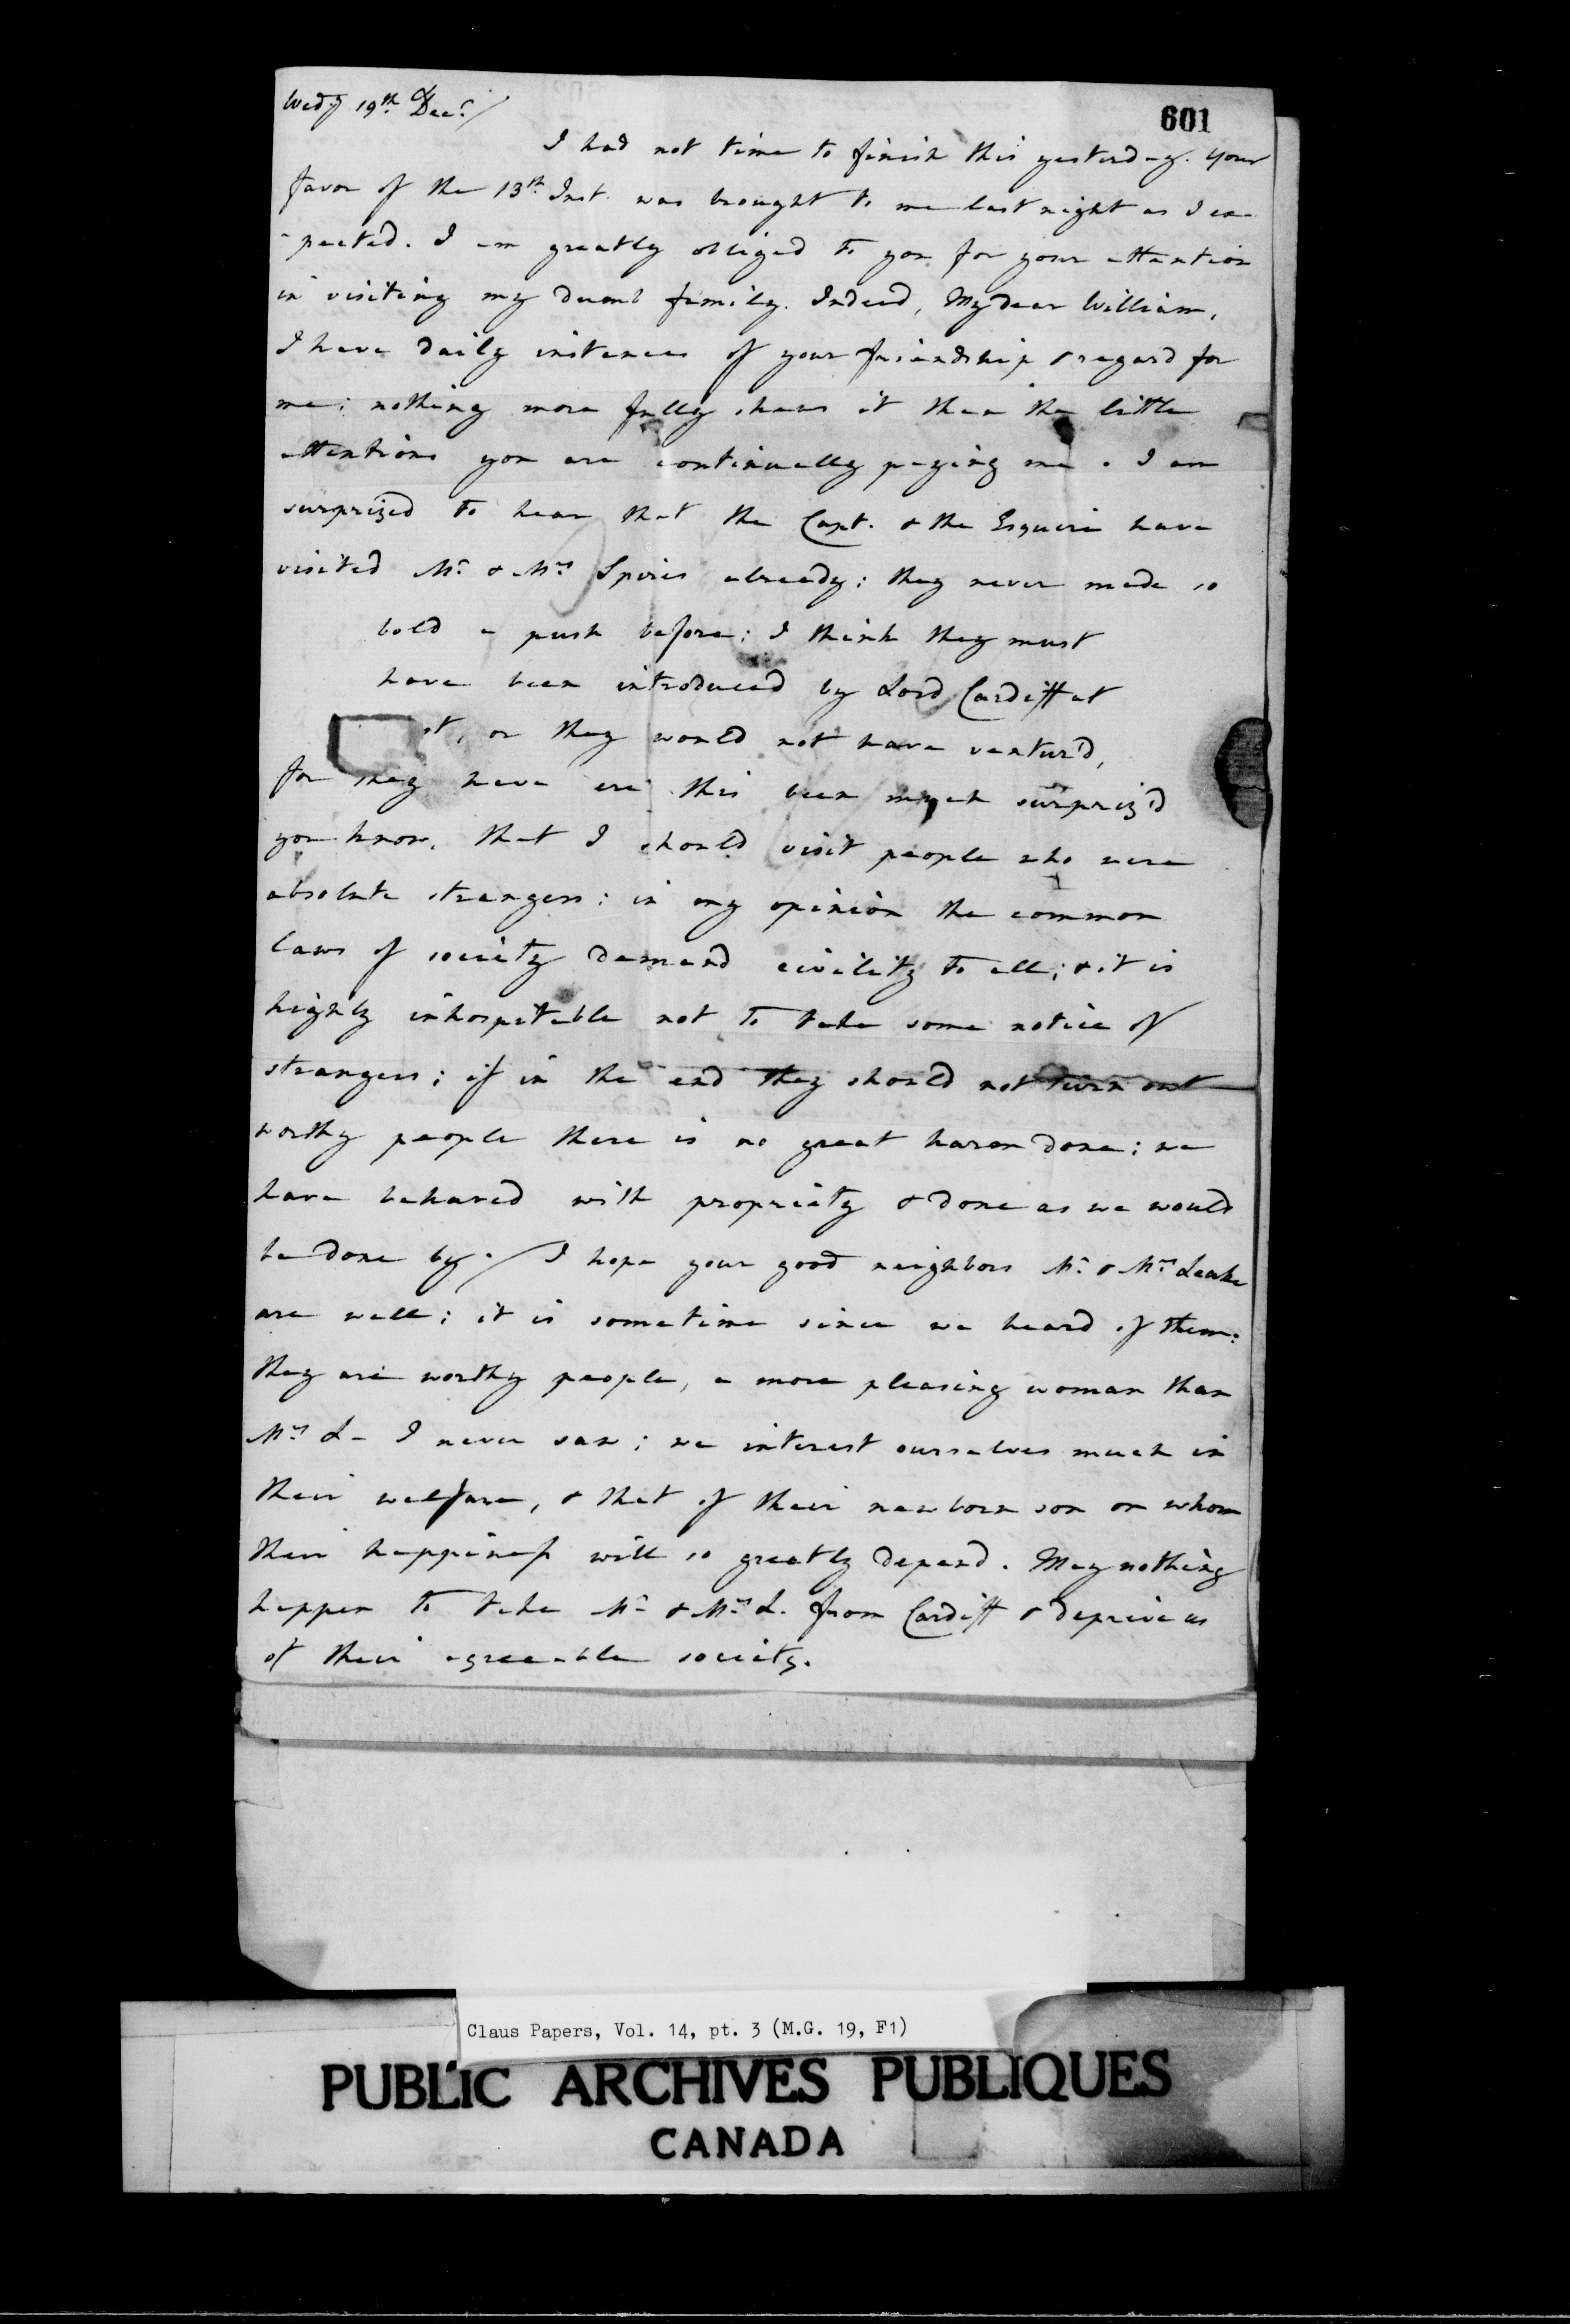 Wedy 19th Decr/
601
I had not time to finish this yesterday. Your
favor of the 13th Inst. was brought to me last night as I ex-
-pected. I am greatly obliged to you for your attention
in visiting my dumb family. Indeed, My dear William,
I have daily instances of your friendship & regard for
me; nothing more fully shews it than the little
attentions you are continually paying me. I am
surprized to hear that the Capt. & the Esquire have
visited Mr. & Mrs Spires already: they never made so
bold a push before: I think they must
have been introduced by Lord Cardiff at
st, or they would not have ventur'd,
for they have ere this been much surpriz'd
you know, that I should visit people who were
absolute strangers: in my opinion the common
laws of society demand civility to all; & it is
highly inhospitable not to take some notice of
strangers; if in the end they should not turn out
worthy people there is no great harm done; we
have behaved with propriety & done as we would
be done by./ I hope your good neighbors Mr. & Mrs Leake
are well; it is sometime since we heard of them:
they are worthy people, a more pleasing woman than
Mrs L- I never saw; we interest ourselves much in
their welfare, & that of their new born son on whom
their happiness will so greatly depend. May nothing
happen to take Mr & Mrs L. from Cardiff & deprive us
of their agreeable society.
Claus Papers, Vol. 14, pt. 3 (M.G. 19, F1)
PUBLIC ARCHIVES PUBLIQUES
CANADA